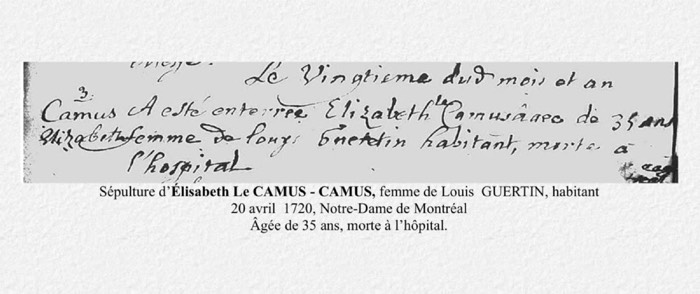 Le Vingtieme dud mois et an
3.
Camus A esté enterrée Elizabeth le Camus âgee de 35 ans
Elizabeth femme de louys Guertin habitant, morte à
l'hospital
Sépulture d'Élisabeth Le CAMUS - CAMUS, femme de Louis GUERTIN, habitant
20 avril 1720, Notre-Dame de Montréal
Âgée de 35 ans, morte à l'hôpital.